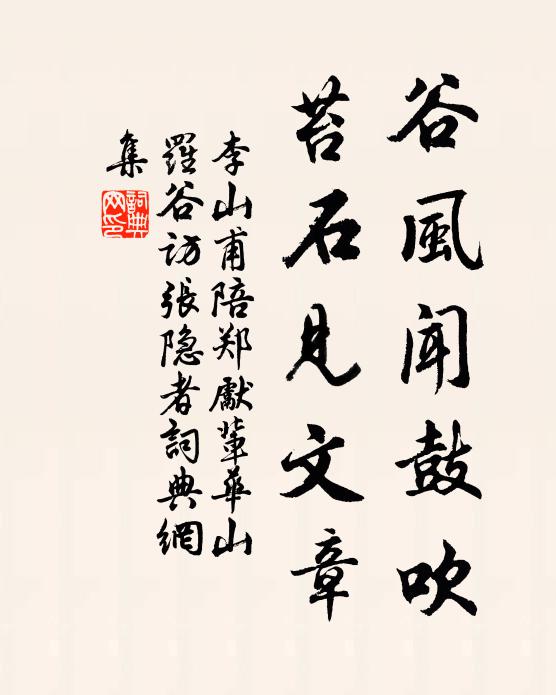 谷風闻鼓吹
苔石見文章
李山甫陪郑獻輩華山
羅谷访張隐者詞典網
集
詞典网印